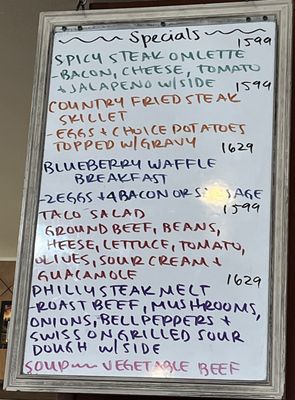 Specials
SPICY STEAK OMLETTE 1599
-BACON, CHEESE, TOMATO
+ JALAPENO W/SIDE 1599
COUNTRY FRIED STEAK
SKILLET
-EGGS + CHOICE POTATOES
TOPPED W/GRAVY 1629
BLUEBERRY WAFFLE
BREAKFAST
-2EGGS +4BACON OR SAUSAGE
TACO SALAD 1599
GROUND BEEF, BEANS,
CHEESE, LETTUCE, TOMATO,
OLIVES, SOUR CREAM +
GUACAMOLE 1629
PHILLY STEAK MELT
-ROAST BEEF, MUSHROOMS,
ONIONS, BELLPEPPERS +
SWISS ON GRILLED SOUR
DOUGH W/ SIDE
SOUP VEGETABLE BEEF